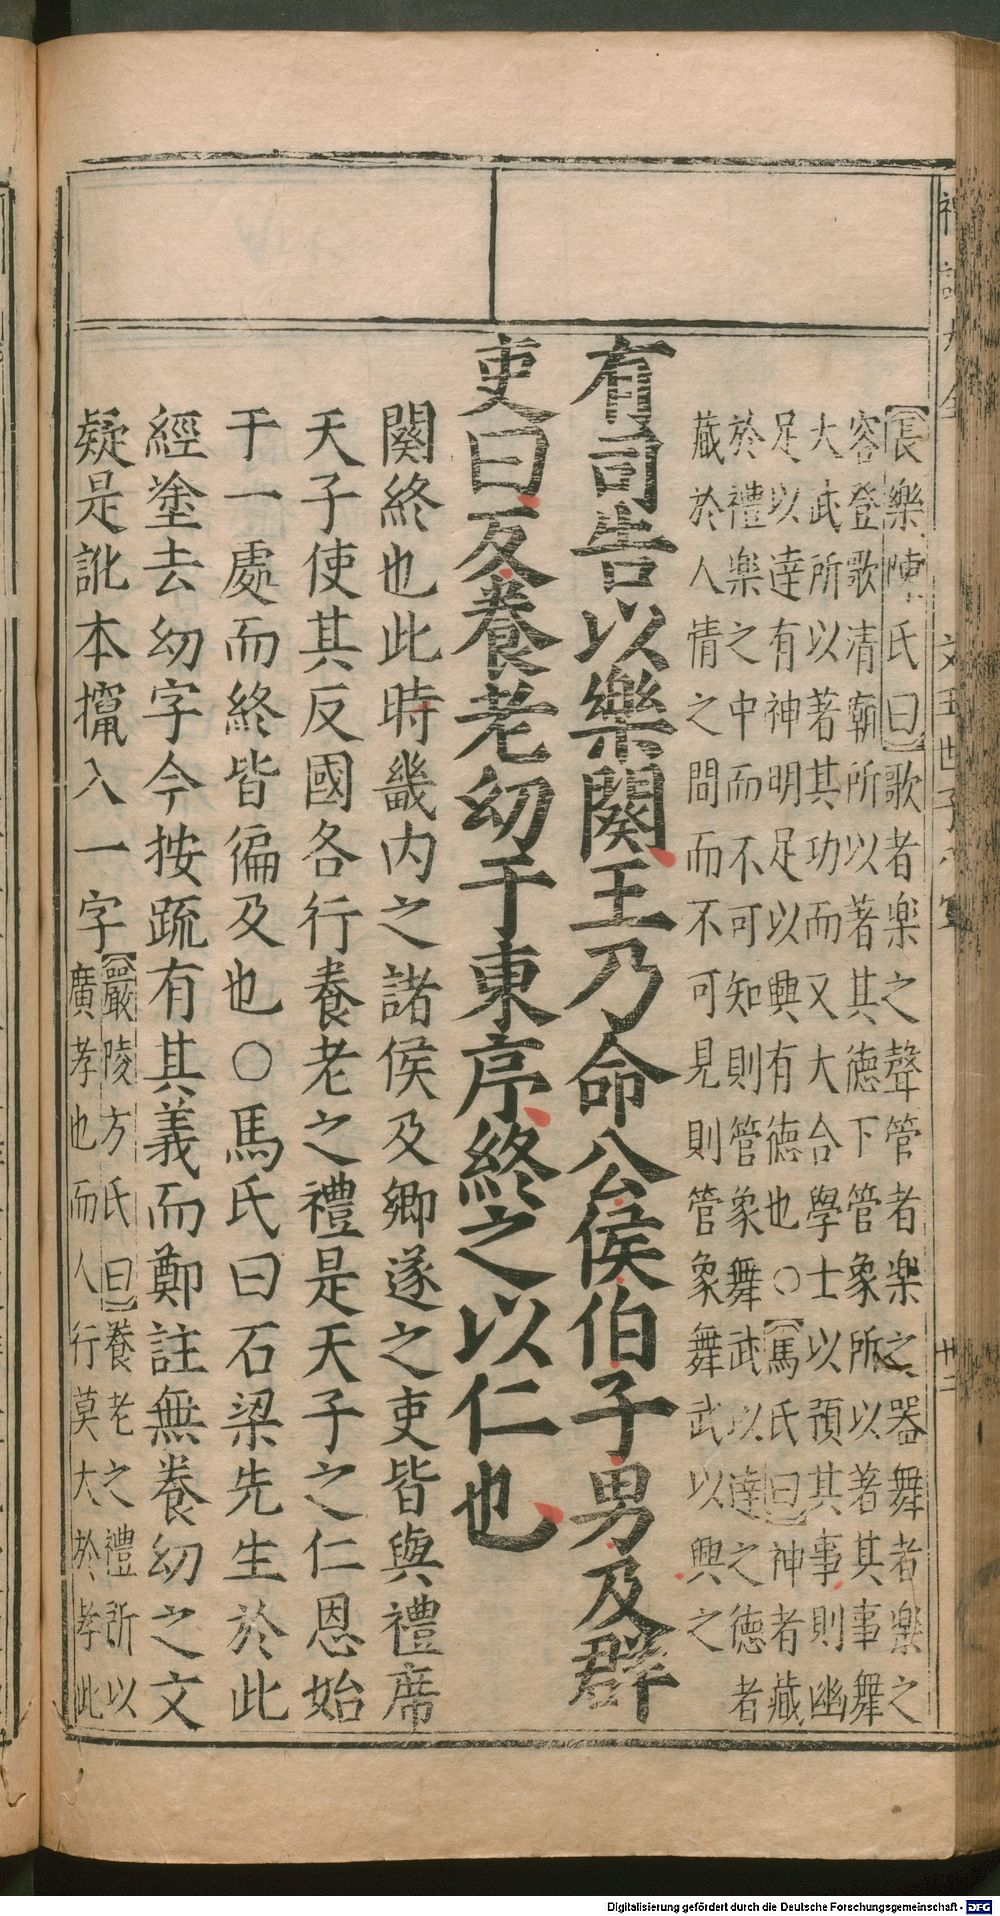 【長樂陳氏曰】歌者樂之聲管者樂之器舞者樂之
容登歌清廟所以著其德下管象所以著其事舞
大武所以著其功而又大合學士以預其事則幽
足以達有神明足以興有德也○【馬氏曰】神者藏
於禮樂之中而不可知則管象舞武以達之德者
藏於人情之間而不可見則管象舞武以興之
有司告以樂闋王乃命公侯伯子男及群
吏曰反養老幼于東序終之以仁也
闋終也此時畿內之諸侯及卿遂之吏皆與禮席
天子使其反國各行養老之禮是天子之仁恩始
于一處而終皆徧及也○馬氏曰石梁先生於此
經塗去幼字今按疏有其義而鄭註無養幼之文
疑是訛本攛入一字【嚴陵方氏曰】養老之禮所以
廣孝也而人行莫大於孝此
文王世子
廿二
Digitalisierung gefördert durch die Deutsche Forschungsgemeinschaft - DFG